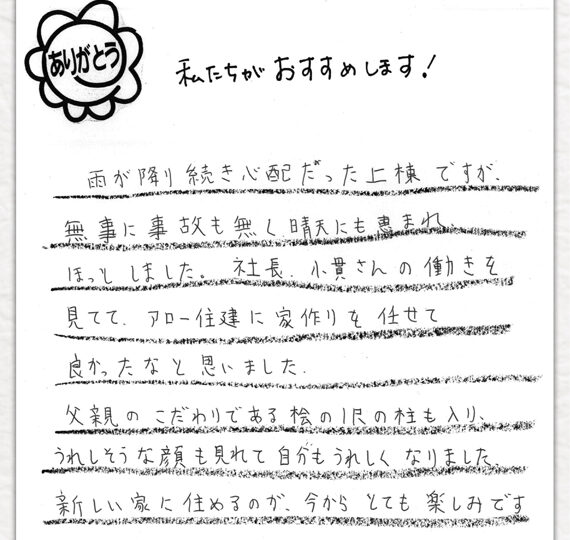 ありがとう
私たちがおすすめします!
雨が降り続き心配だった上棟ですが、
無事に事故も無く、晴天にも恵まれ、
ほっとしました。社長、小貫さんの働きを
見てて、アロー住建に家作りを任せて
良かったなと思いました。
父親のこだわりである桧の1尺の柱も入り、
うれしそうな顔も見れて自分もうれしくなりました。
新しい家に住めるのが、今からとても楽しみです